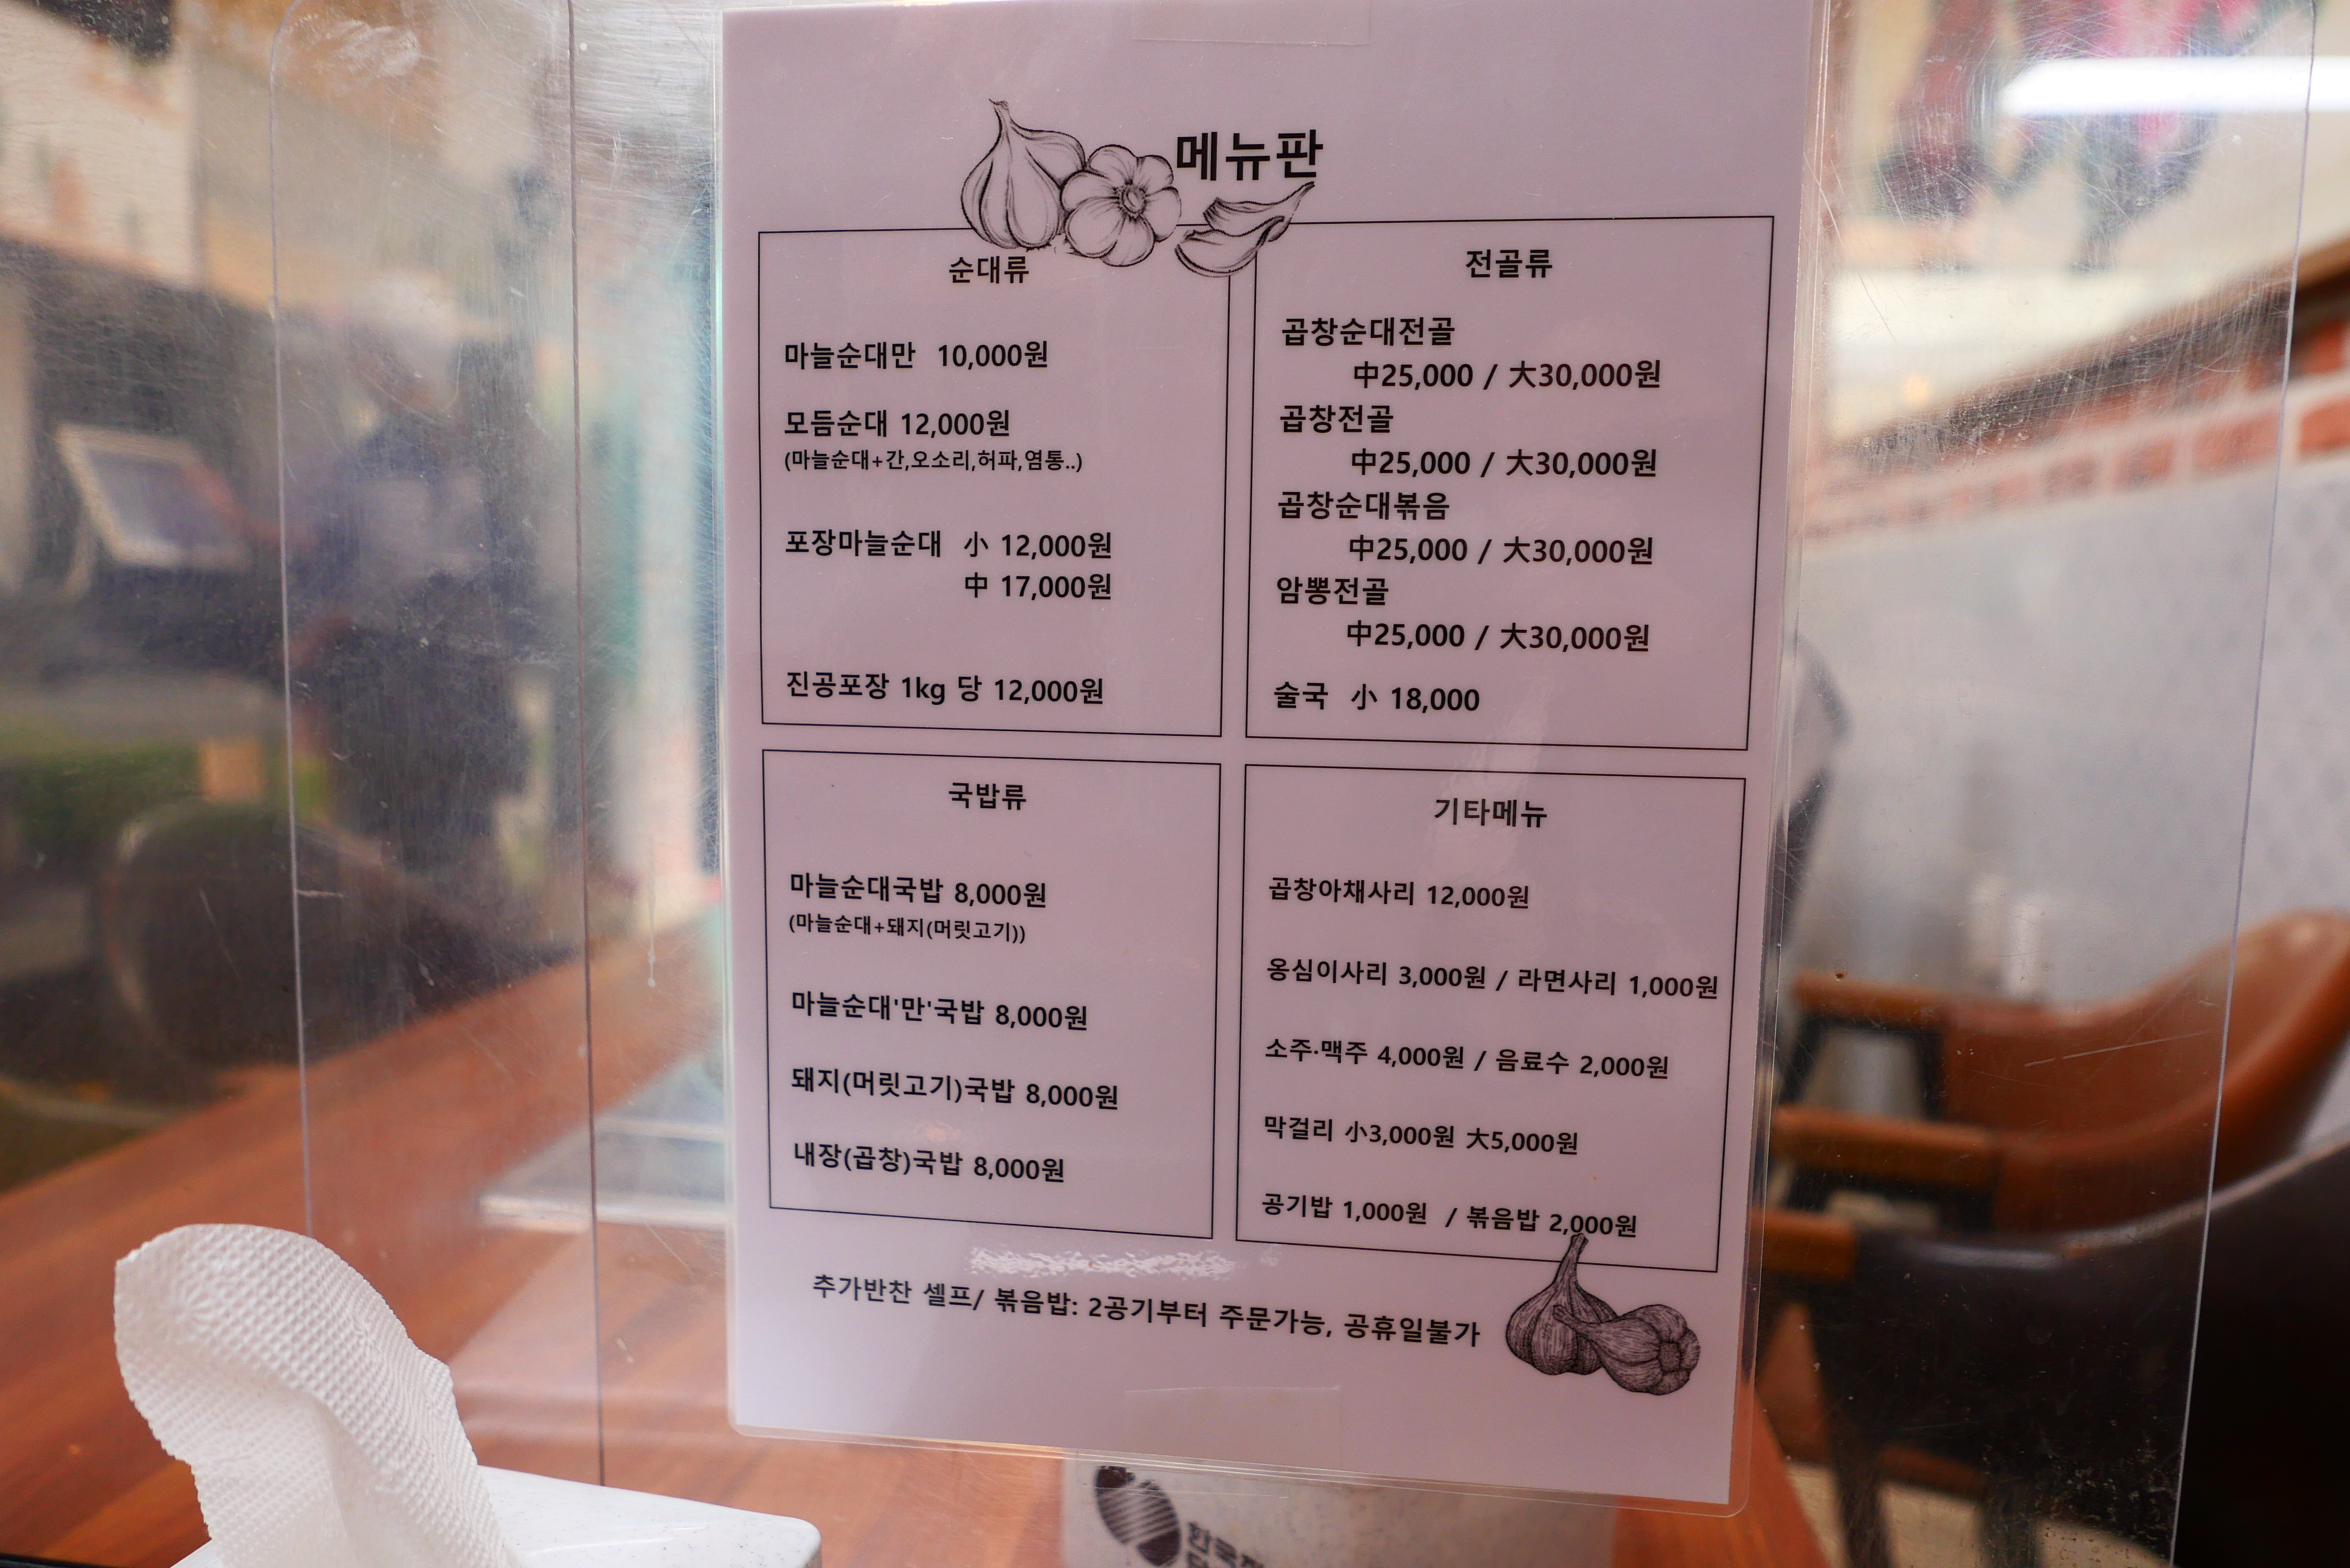 메뉴판
순대류
마늘순대만 10,000원
모듬순대 12,000원
(마늘순대+간,오소리,허파,염통..)
포장마늘순대 小 12,000원
中 17,000원
진공포장 1kg 당 12,000원
전골류
곱창순대전골
中25,000 / 大30,000원
곱창전골
中25,000 / 大30,000원
곱창순대볶음
中25,000 / 大30,000원
암뽕전골
中25,000 / 大30,000원
술국 小 18,000
국밥류
마늘순대국밥 8,000원
(마늘순대+돼지(머릿고기))
마늘순대'만'국밥 8,000원
돼지(머릿고기)국밥 8,000원
내장(곱창)국밥 8,000원
기타메뉴
곱창야채사리 12,000원
옹심이사리 3,000원 / 라면사리 1,000원
소주·맥주 4,000원 / 음료수 2,000원
막걸리 小3,000원 大5,000원
공기밥 1,000원 / 볶음밥 2,000원
추가반찬 셀프/ 볶음밥: 2공기부터 주문가능, 공휴일불가